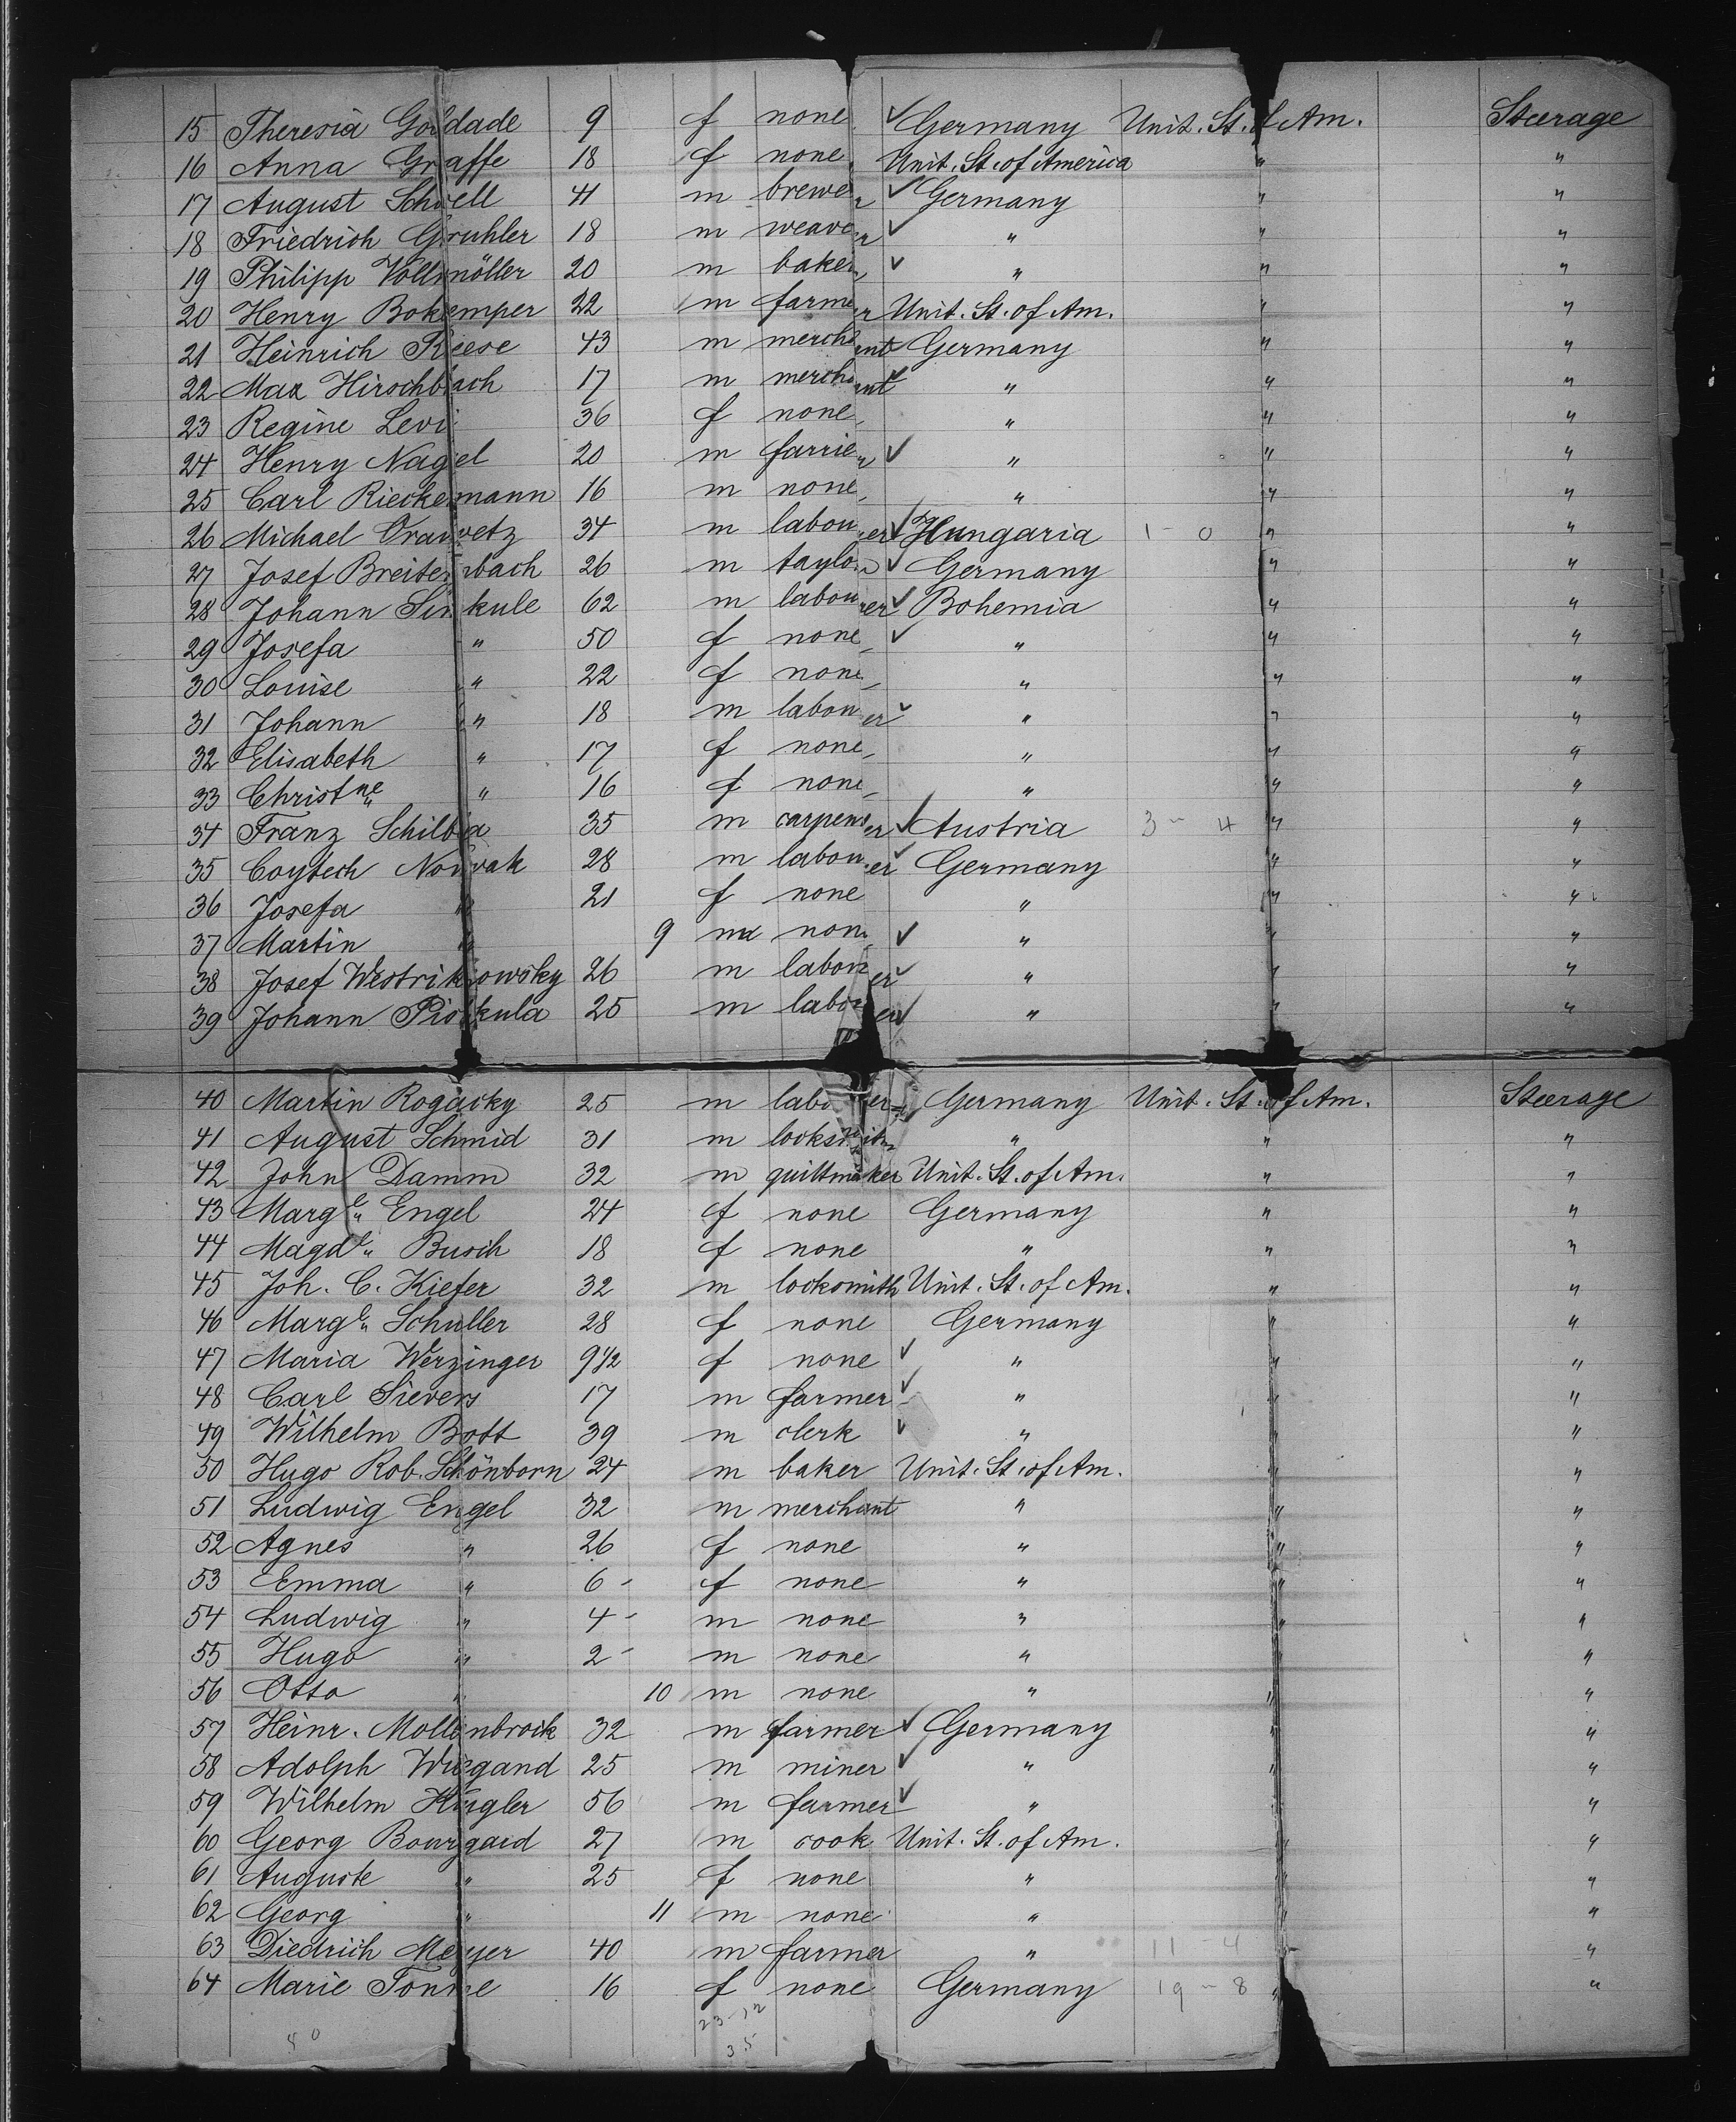 15 Theresia Goldade 9 f none ✓ Germany Unit. St. of Am. Steerage
16 Anna Graffe 18 f none Unit. St. of America " "
17 August Schoell 41 m brewer ✓ Germany " "
18 Friedrich Gruhler 18 m weaver ✓ " " "
19 Philipp Vollmöller 20 m baker ✓ " " "
20 Henry Bokemper 22 m farmer Unit. St. of Am. " "
21 Heinrich Reese 43 m merchant Germany " "
22 Max Hirschbach 17 m merchant ✓ " " "
23 Regine Levi 36 f none " " "
24 Henry Nagel 20 m farrier ✓ " " "
25 Carl Rieckemann 16 m none " " "
26 Michael Orawetz 34 m labourer ✓ Hungaria 1 - 0 " "
27 Josef Breitenbach 26 m taylor ✓ Germany " "
28 Johann Sinkule 62 m labourer ✓ Bohemia " "
29 Josefa " 50 f none ✓ " " "
30 Louise " 22 f none " " "
31 Johann " 18 m labourer ✓ " " "
32 Elisabeth " 17 f none " " "
33 Christne " 16 f none " " "
34 Franz Schilba 35 m carpenter ✓ Austria 3 - 4 " "
35 Coytech Nowak 28 m labourer ✓ Germany " "
36 Josefa " 21 f none " " "
37 Martin " 9 m none ✓ " " "
38 Josef Westrikowsky 26 m labourer ✓ " " "
39 Johann Piotkula 25 m labourer ✓ " " "
40 Martin Rogacky 25 m labourer Germany Unit. St. of Am. Steerage
41 August Schmid 31 m locksmith " " "
42 John Damm 32 m quiltmaker Unit. St. of Am. " "
43 Marge Engel 24 f none Germany " "
44 Magde Busch 18 f none " " "
45 Joh. C. Kiefer 32 m locksmith Unit. St. of Am. " "
46 Marge Schuller 28 f none Germany " "
47 Maria Werzinger 9 1/2 f none ✓ " " "
48 Carl Sievers 17 m farmer ✓ " " "
49 Wilhelm Bott 39 m clerk ✓ " " "
50 Hugo Rob. Schönborn 24 m baker Unit. St. of Am. " "
51 Ludwig Engel 32 m merchant " " "
52 Agnes " 26 f none " " "
53 Emma " 6 - f none " " "
54 Ludwig " 4 - m none " " "
55 Hugo " 2 - m none " " "
56 Otto " 10 m none " " "
57 Heinr. Mollenbrock 32 m farmer ✓ Germany " "
58 Adolph Wiegand 25 m miner ✓ " " "
59 Wilhelm Kugler 56 m farmer ✓ " " "
60 Georg Bourgaid 27 m cook Unit. St. of Am. " "
61 Auguste " 25 f none " " "
62 Georg " 11 m none " " "
63 Diedrich Meyer 40 m farmer " 11 - 4 " "
64 Marie Tonne 16 f none Germany 19 - 8 " "
23-12
35